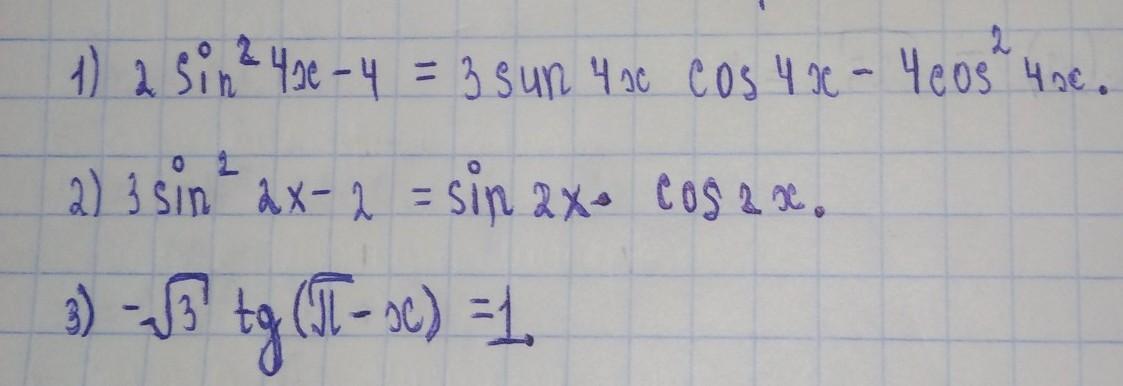 1) 2 sin² 4x - 4 = 3 sin 4x cos 4x - 4cos² 4x.
2) 3 sin² 2x - 2 = sin 2x • cos 2x.
3) -√3 tg (π - x) = 1.